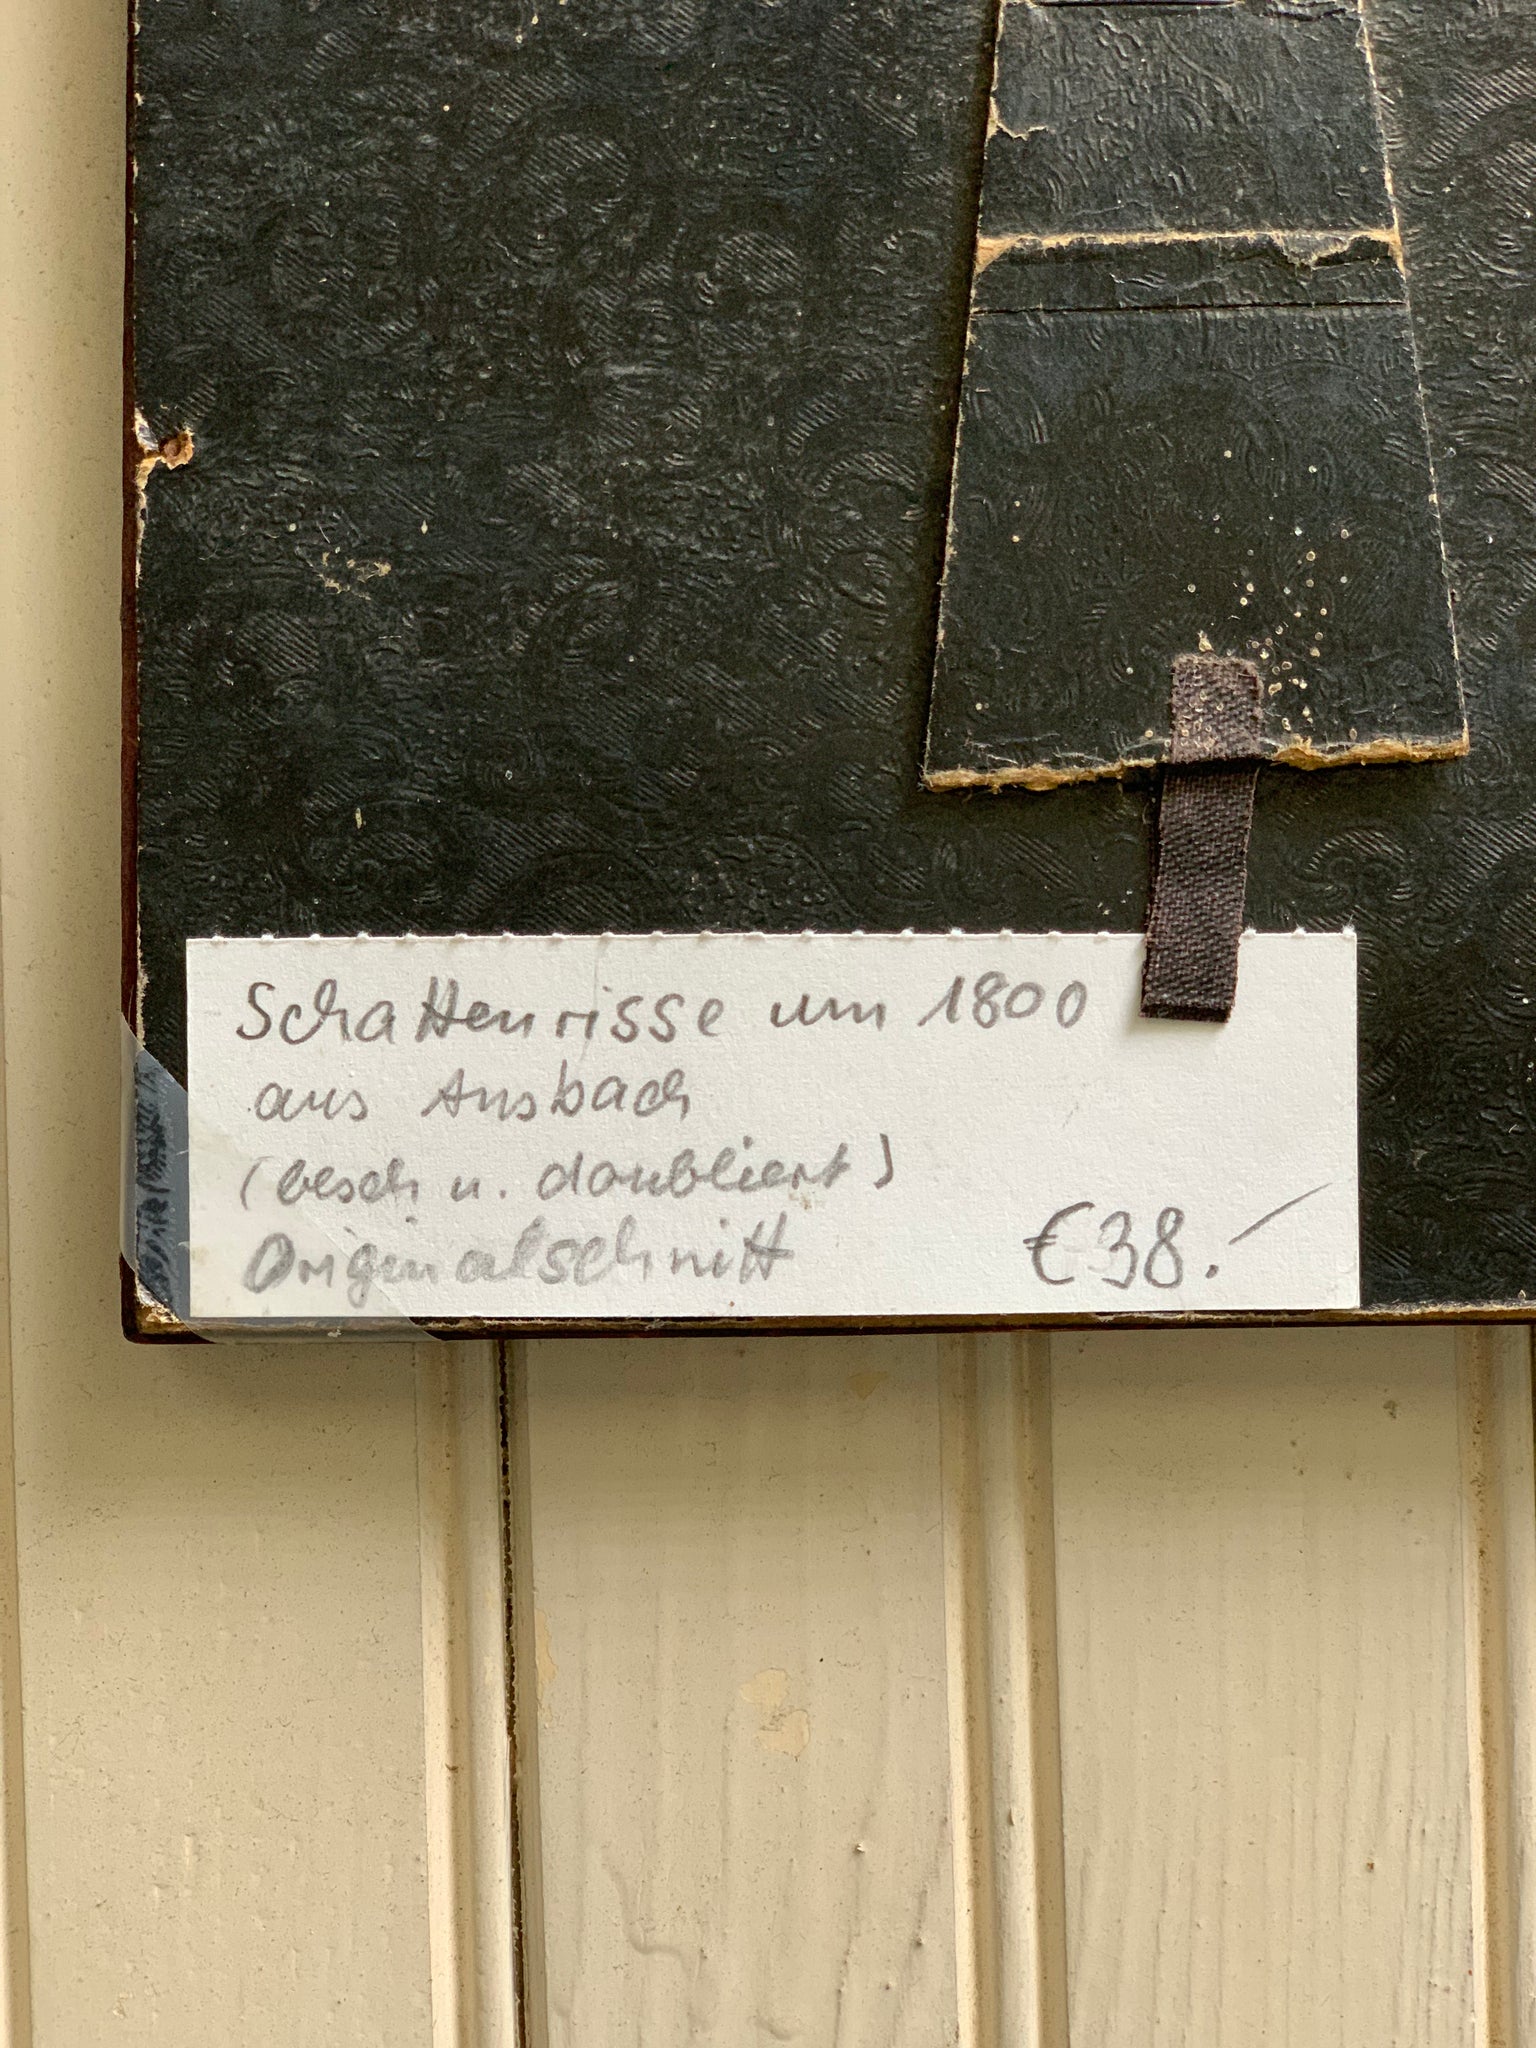 Schattenrisse um 1800
aus Ansbach
(besch u. doubliert)
Originalschnitt
€38.-